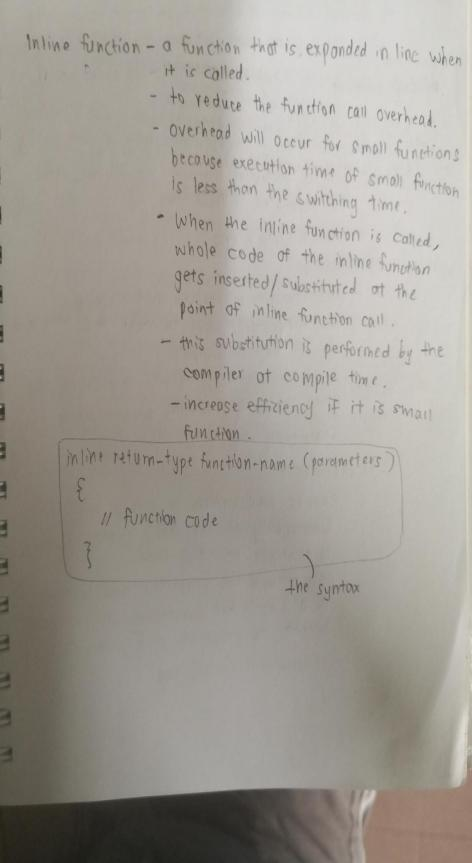 Inline function - a function that is expanded in line when
it is called.
- to reduce the function call overhead.
- overhead will occur for small functions
because execution time of small function
is less than the switching time.
- when the inline function is called,
whole code of the inline function
gets inserted/substituted at the
point of inline function call.
- this substitution is performed by the
compiler at compile time.
- increase efficiency if it is small
function.
inline return-type function-name (parameters)
{
// function code
}
the syntax